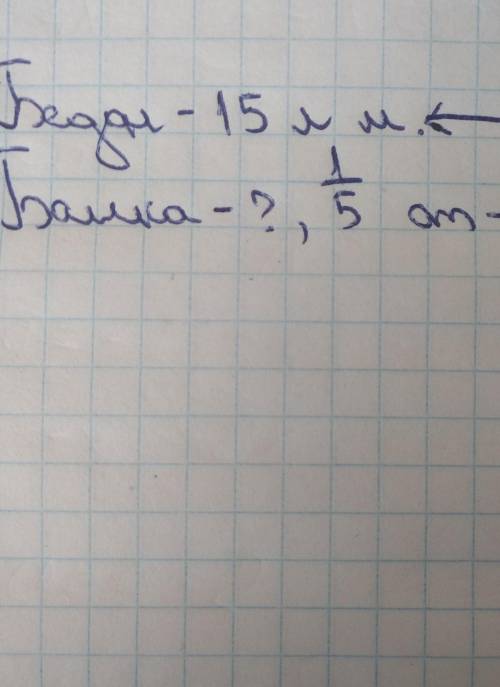 Бидон - 15 л м.
Банка - ?, 1/5 от